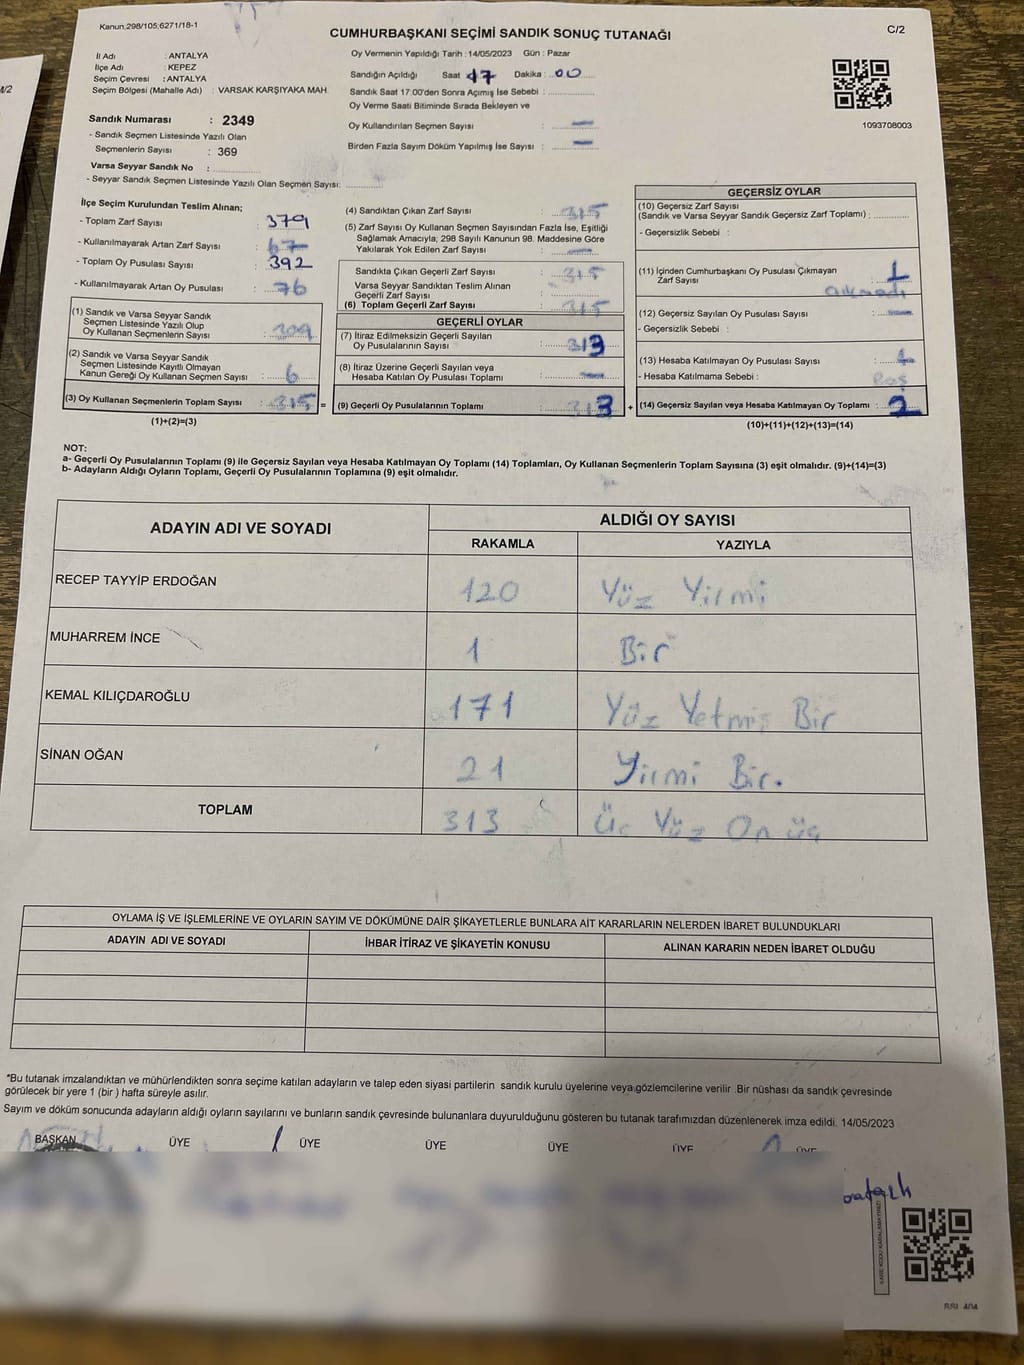 Kanun,298/105;6271/18-1
CUMHURBAŞKANI SEÇİMİ SANDIK SONUÇ TUTANAĞI
C/2
İl Adı : ANTALYA
İlçe Adı : KEPEZ
Seçim Çevresi : ANTALYA
Seçim Bölgesi (Mahalle Adı) : VARSAK KARŞIYAKA MAH.
Oy Vermenin Yapıldığı Tarih : 14/05/2023 Gün : Pazar
Sandığın Açıldığı Saat 17 Dakika : 00
Sandık Saat 17:00'den Sonra Açımış İse Sebebi :
Oy Verme Saati Bitiminde Sırada Bekleyen ve
Oy Kullandırılan Seçmen Sayısı : —
Birden Fazla Sayım Döküm Yapılmış İse Sayısı : —
1093708003
Sandık Numarası : 2349
- Sandık Seçmen Listesinde Yazılı Olan
Seçmenlerin Sayısı : 369
Varsa Seyyar Sandık No :
- Seyyar Sandık Seçmen Listesinde Yazılı Olan Seçmen Sayısı:
İlçe Seçim Kurulundan Teslim Alınan;
- Toplam Zarf Sayısı : 379
- Kullanılmayarak Artan Zarf Sayısı : 67
- Toplam Oy Pusulası Sayısı : 392
- Kullanılmayarak Artan Oy Pusulası : 76
(1) Sandık ve Varsa Seyyar Sandık
Seçmen Listesinde Yazılı Olup
Oy Kullanan Seçmenlerin Sayısı : 309
(2) Sandık ve Varsa Seyyar Sandık
Seçmen Listesinde Kayıtlı Olmayan
Kanun Gereği Oy Kullanan Seçmen Sayısı : 6
(3) Oy Kullanan Seçmenlerin Toplam Sayısı : 315 =
(1)+(2)=(3)
(4) Sandıktan Çıkan Zarf Sayısı : 315
(5) Zarf Sayısı Oy Kullanan Seçmen Sayısından Fazla İse, Eşitliği
Sağlamak Amacıyla; 298 Sayılı Kanunun 98. Maddesine Göre
Yakılarak Yok Edilen Zarf Sayısı : —
Sandıkta Çıkan Geçerli Zarf Sayısı : 315
Varsa Seyyar Sandıktan Teslim Alınan
Geçerli Zarf Sayısı :
(6) Toplam Geçerli Zarf Sayısı : 315
GEÇERLİ OYLAR
(7) İtiraz Edilmeksizin Geçerli Sayılan
Oy Pusulalarının Sayısı : 313
(8) İtiraz Üzerine Geçerli Sayılan veya
Hesaba Katılan Oy Pusulası Toplamı : —
(9) Geçerli Oy Pusulalarının Toplamı : 313 +
GEÇERSİZ OYLAR
(10) Geçersiz Zarf Sayısı
(Sandık ve Varsa Seyyar Sandık Geçersiz Zarf Toplamı) :
- Geçersizlik Sebebi :
(11) İçinden Cumhurbaşkanı Oy Pusulası Çıkmayan
Zarf Sayısı : 1
çıkmadı
(12) Geçersiz Sayılan Oy Pusulası Sayısı : —
- Geçersizlik Sebebi :
(13) Hesaba Katılmayan Oy Pusulası Sayısı : 1
- Hesaba Katılmama Sebebi : Boş
(14) Geçersiz Sayılan veya Hesaba Katılmayan Oy Toplamı : 2
(10)+(11)+(12)+(13)=(14)
NOT:
a- Geçerli Oy Pusulalarının Toplamı (9) ile Geçersiz Sayılan veya Hesaba Katılmayan Oy Toplamı (14) Toplamları, Oy Kullanan Seçmenlerin Toplam Sayısına (3) eşit olmalıdır. (9)+(14)=(3)
b- Adayların Aldığı Oyların Toplamı, Geçerli Oy Pusulalarının Toplamına (9) eşit olmalıdır.
ADAYIN ADI VE SOYADI
ALDIĞI OY SAYISI
RAKAMLA YAZIYLA
RECEP TAYYİP ERDOĞAN 120 Yüz Yirmi
MUHARREM İNCE 1 Bir
KEMAL KILIÇDAROĞLU 171 Yüz Yetmiş Bir
SİNAN OĞAN 21 Yirmi Bir.
TOPLAM 313 Üç Yüz On üç
OYLAMA İŞ VE İŞLEMLERİNE VE OYLARIN SAYIM VE DÖKÜMÜNE DAİR ŞİKAYETLERLE BUNLARA AİT KARARLARIN NELERDEN İBARET BULUNDUKLARI
ADAYIN ADI VE SOYADI İHBAR İTİRAZ VE ŞİKAYETİN KONUSU ALINAN KARARIN NEDEN İBARET OLDUĞU
*Bu tutanak imzalandıktan ve mühürlendikten sonra seçime katılan adayların ve talep eden siyasi partilerin sandık kurulu üyelerine veya gözlemcilerine verilir .Bir nüshası da sandık çevresinde
görülecek bir yere 1 (bir ) hafta süreyle asılır.
Sayım ve döküm sonucunda adayların aldığı oyların sayılarını ve bunların sandık çevresinde bulunanlara duyurulduğunu gösteren bu tutanak tarafımızdan düzenlenerek imza edildi. 14/05/2023
BAŞKAN ÜYE ÜYE ÜYE ÜYE ÜYE ÜYE
KARE KODU KARALAMAYINIZ!